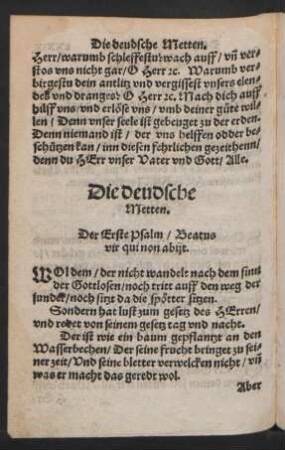 Die deudsche Metten.
Herr/warumb schleffestu? wach auff/ vñ ver-
stos vns nicht gar/ O Herr ꝛc. Warumb ver-
birgestu dein antlitz vnd vergissest vnsers elen-
des vnd dranges? O Herr ꝛc. Mach dich auff/
hilff vns/ vnd erlöse vns / vmb deiner güte wil-
len / Denn vnser seele ist gebeuget zu der erden.
Denn niemand ist / der vns helffen odder be-
schützen kan / inn diesen fehrlichen gezeitenn/
denn du HErr vnser Vater vnd Gott/ Alle.
Die deudsche
Metten.
Der Erste Psalm / Beatus
vir qui non abijt.
WOl dem / der nicht wandelt nach dem sinn
der Gottlosen/noch tritt auff den weg der
sunder/noch sitzt da die spötter sitzen.
Sondern hat lust zum gesetz des HErren/
vnd redet von seinem gesetz tag vnd nacht.
Der ist wie ein baum gepflantzt an den
Wasserbechen/ Der seine frucht bringet zu sei-
ner zeit/ Vnd seine bletter verwelcken nicht/ vñ
was er macht das geredt wol.
Aber